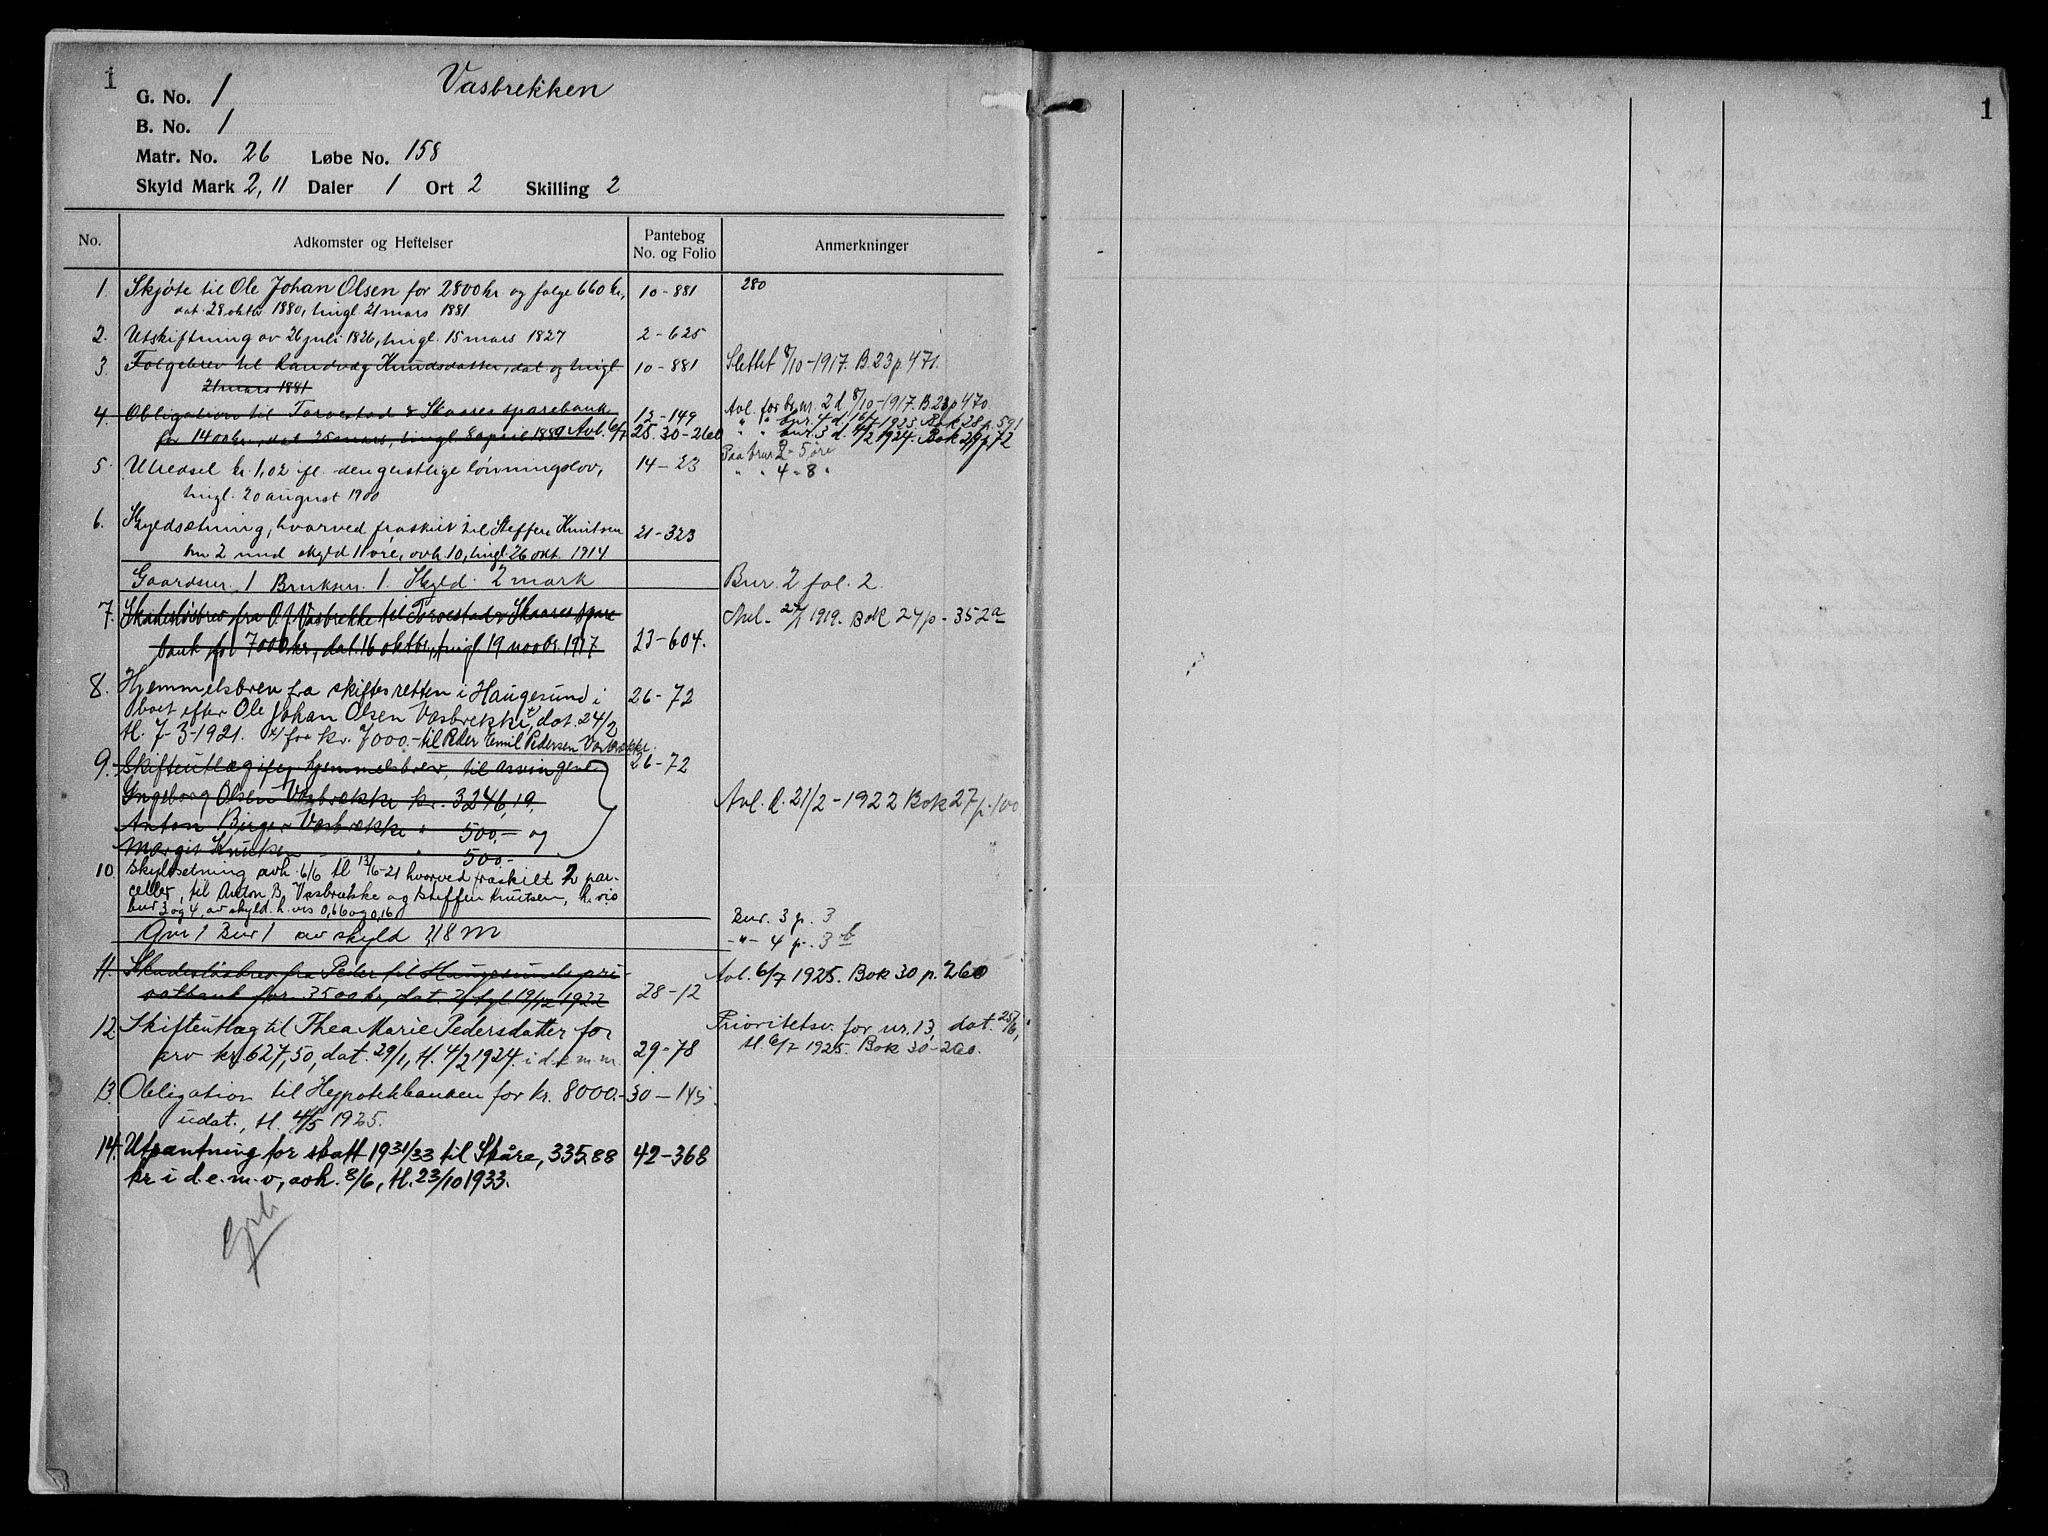 1
Vasbrekken
G. No. 1
B. No. 1
Matr. No. 26 Løbe No. 158
Skyld Mark 2,11 Daler 1 Ort 2 Skilling 2
1
No. Adkomster og Heftelser Pantebog No. og Folio Anmerkninger
1. Skjøte til Ole Johan Olsen for 2800 kr og følge 660 kr, 10-881 280
dat 28 oktbr 1880, tingl 21 mars 1881
2. Utskiftning av 26 juli 1826, tingl. 15 mars 1827 2-625
3 Følgebrev til Randvæg Knudsdatter, dat og tingl 10-881 Slettet 8/10-1917. B.23 p 471.
21 mars 1881
4. Obligation til Torvestad & Skaares sparebank 12-149 Avl. for br.nr. 2 d 8/10-1917. B.23 p 470.
for 1400 kr, dat 25 mars, tingl 8 april 1889 Avl. 6/7 25. 30-260 " " bnr. 4 d. 16/7 1925. Bok 28 p. 591
" " bnr. 3 d. 4/2 1924. Bok 29 p 72
5. Utredsel kr. 1,02 ifl. den geistlige løvningslov, 14-23 Paa bnr 2 - 5 øre
tingl. 20 august 1900 " " 4 " 8 "
6. Skyldsætning, hvorved fraskilt til Steffen Knutsen 21-323
bnr 2 med skyld 11 øre, avh. 10, tingl. 26 okt. 1914
Gaardsnr. 1 Bruksnr. 1. Skyld. 2 mark Bnr. 2 fol. 2
7. Skadesløsbrev fra O. J. Vasbrekke til Torvestad & Skaares spare Avl. 1919. Bok 24 p - 352a
bank for 7000 kr, dat. 16 oktbr., tingl 19 novbr. 1917 23-604.
8. Hjemmelsbrev fra skiftesretten i Haugesund i 26-72
boet efter Ole Johan Olsen Vasbrekke x), dat. 24/2
tl. 7-3-1921. x) for kr. 7000.- til Peder Emil Pedersen Vasbrekke.
9. Skifteutlæg ifl. hjemmelsbrev, til arvingene 26-72
Ingeborg Olsen Vasbrække kr. 3246,19, Avl. d. 21/2-1922 Bok 27 p. 100
Anton Birger Vasbrække " 500,- og
Margit Knutsen " 500-
10 Skyldsetning avh. 6/6 tl 13/6-21 hvorved fraskilt 2 par-
celler, til Anton B. Vasbrekke og Steffen Knutsen, h. vis
bnr 3 og 4, av skyld. h. vis 0,66 og 0,16 Bnr. 3 p. 3
Gnr 1 Bnr 1 av skyld 1,18 m -"- 4 p. 3b
11. Skadesløsbrev fra Peder til Haugesunds pri- Avl. 6/7 1925. Bok 30 p. 260
vatbank for. 3500 kr, dat. 2, tgl. 19/12 1922 28-12
12. Skifteutlæg til Thea Marie Pedersdatter for Prioritetsv. for nr. 13, dat. 25/6,
prv kr. 627,50, dat. 29/1, tl. 4/2 1924. i d. e. m. m. 29-78 tl. 6/7 1925. Bok 30-260.
13. Obligation til Hypotekbanken for kr. 8000.- 30-145
udat., tl. 4/5 1925.
14. Utpantning for skatt 1931/33 til Skåre, 335,88 42-368
kr i d.e.m.v, avh. 8/6, tl. 23/10 1933.